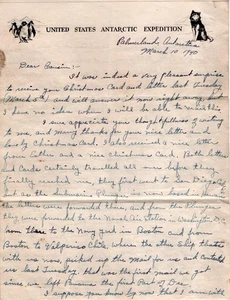 UNITED STATES ANTARCTIC EXPEDITION
Palmerland, Antarctic
March 10 1940
Dear Cousin:-
It was indeed a very pleasant surprise
to receive your Christmas Card and letter last Tuesday
March 5th and will answer it now
I have no idea when I will be able to mail this
I sure appreciate your thoughtfulness of writing
to me, and many thanks for your nice letter and
lovely Christmas Card. I also received a nice letter
from Esther and a nice Christmas Card. Both letters
and Cards certainly traveled all over before they
finally reached me, they first went to San Diego
but as the
the letters were forwarded there, and from
they were forwarded to the Naval Air Station in Washington D.C.
from there to the Navy Yard in Boston and from
Boston to Valpariso Chile, where the other Ship that's
with us now, picked up the mail for us and contacted
us last Tuesday. that was the first mail we got
since we left Panama the first Part of Dec.
I suppose you know by now that I am with